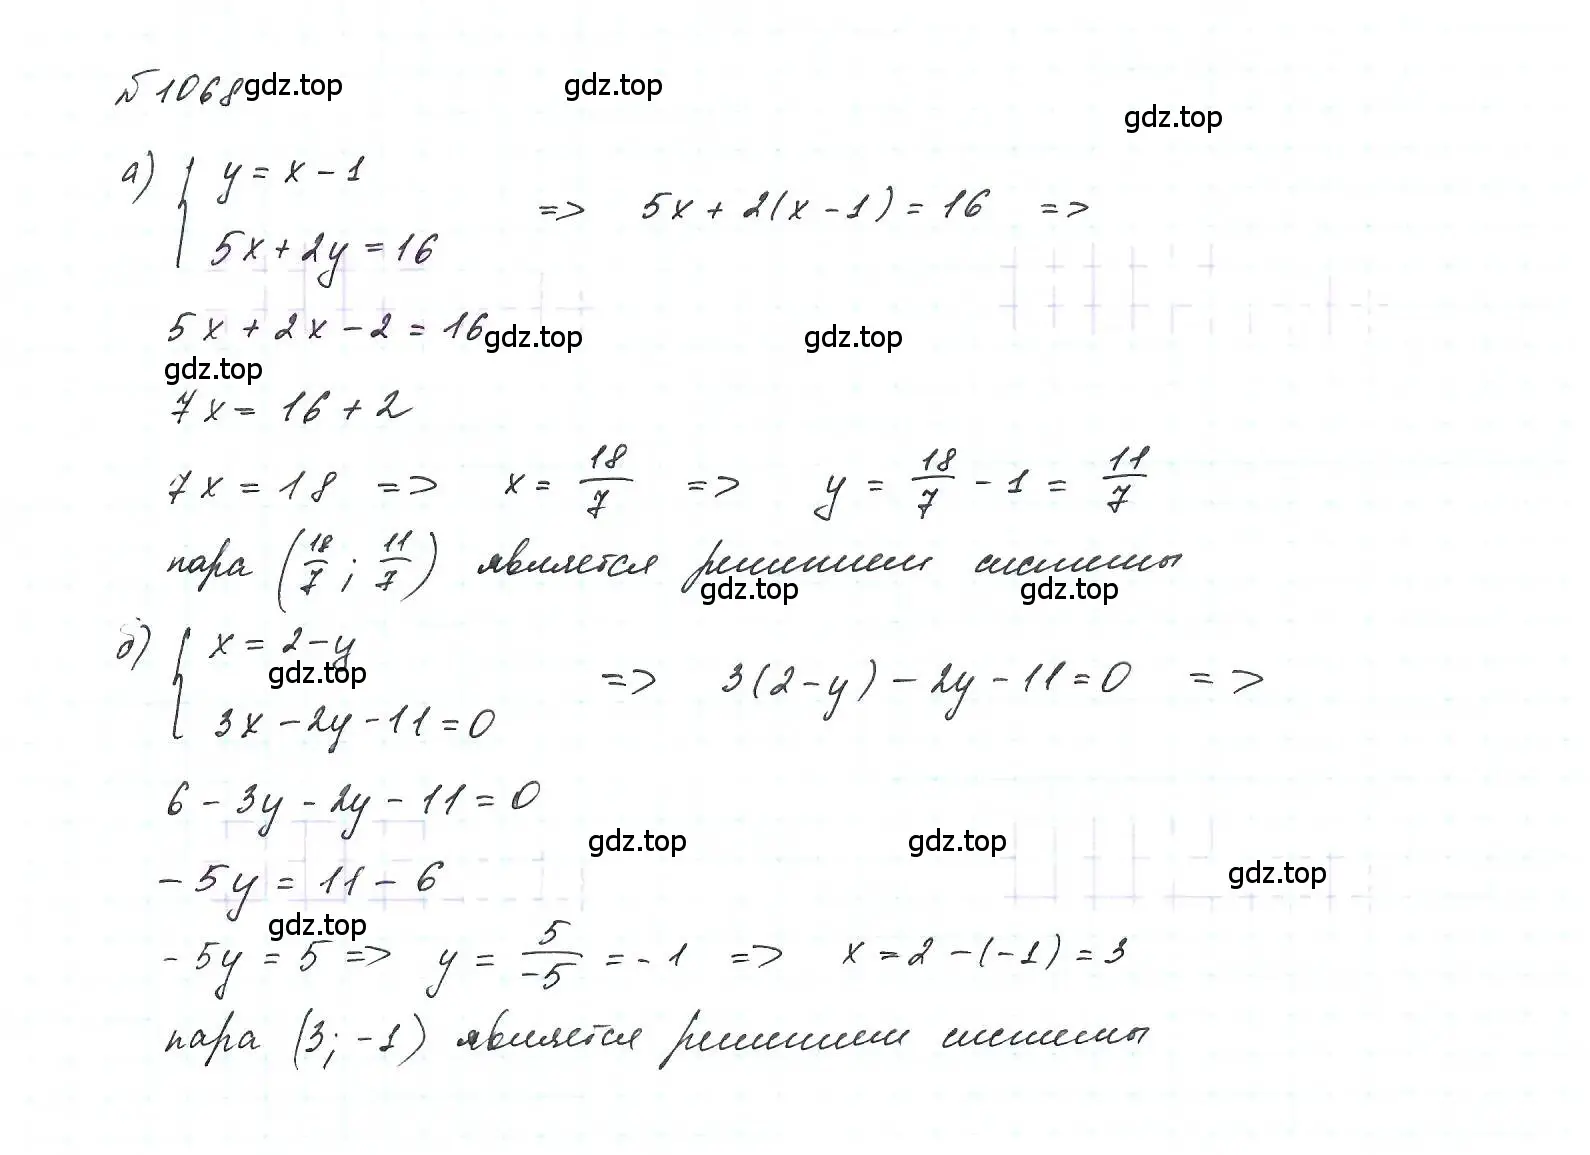 №1068 gdz.top gdz.top gdz.top
а) { y = x - 1
5x + 2y = 16 => 5x + 2(x - 1) = 16 =>
5x + 2x - 2 = 16 gdz.top gdz.top
gdz.top
7x = 16 + 2
7x = 18 => x = 18/7 => y = 18/7 - 1 = 11/7
пара (18/7; 11/7) является решением системы
gdz.top gdz.top
б) { x = 2 - y
gdz.top
3x - 2y - 11 = 0 => 3(2 - y) - 2y - 11 = 0 =>
6 - 3y - 2y - 11 = 0
gdz.top gdz.top gdz.top
-5y = 11 - 6
gdz.top
-5y = 5 => y = 5/-5 = -1 => x = 2 - (-1) = 3
пара (3; -1) является решением системы